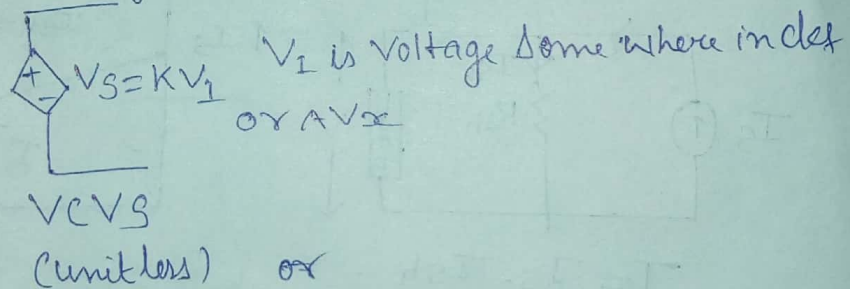 +
-
VS=KV1 V1 is Voltage Some where in ckt
or AVx
VCVS
(unitless) or